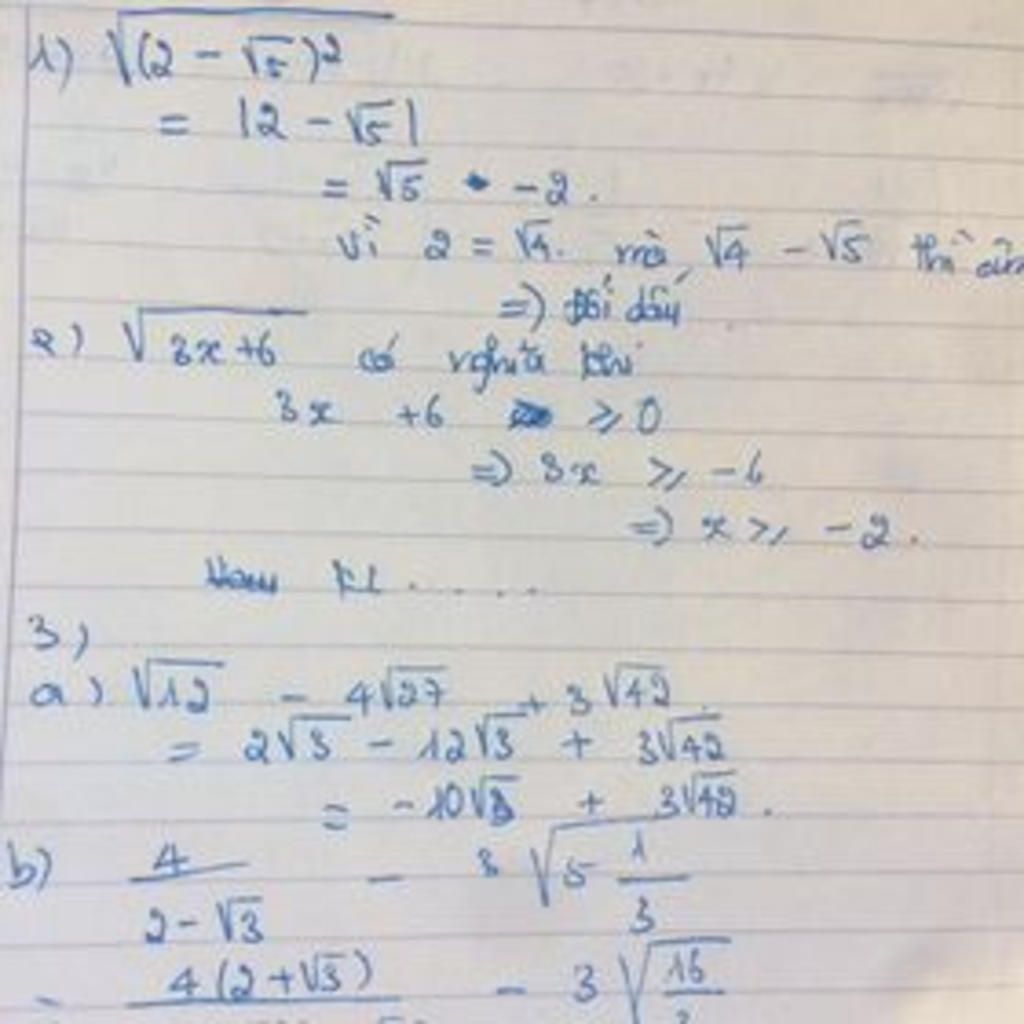 1) √(2 - √5)²
= |2 - √5|
= √5 - 2.
Vì 2 = √4. mà √4 - √5 thì
=) đổi dấu
2) √3x+6 có nghĩa khi
3x +6 ≥ 0
=) 3x ≥ -6
=) x ≥ -2.
3)
a) √12 - 4√27 + 3√42.
= 2√3 - 12√3 + 3√42
= -10√3 + 3√42.
b) 4/(2-√3) - 3√5 1/3
= 4(2+√3) - 3√16